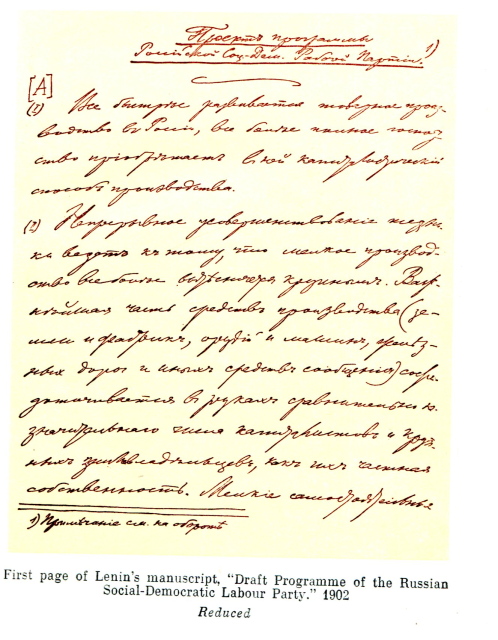 Проектъ программы
Россійской Соц.-Дем. Рабочей Партіи. 1)
[А]
(1) Все быстрѣе развивается товарное произ-
водство въ Россіи, все болѣе полное господ-
ство пріобрѣтаетъ въ ней капиталистическій
способъ производства.
(2) Непрерывное усовершенствованіе техни-
ки ведетъ къ тому, что мелкое производ-
ство все болѣе вытѣсняется крупнымъ. Важ-
нѣйшая часть средствъ производства (зе-
мли и фабрикъ, орудій и машинъ, желѣз-
ныхъ дорогъ и иныхъ средствъ сообщенія) сосре-
доточивается въ рукахъ сравнительно не-
значительнаго числа капиталистовъ и круп-
ныхъ землевладѣльцевъ, какъ ихъ частная
собственность. Мелкіе самостоятельные
1) Примѣчаніе см. на оборотѣ
First page of Lenin's manuscript, "Draft Programme of the Russian
Social-Democratic Labour Party." 1902
Reduced